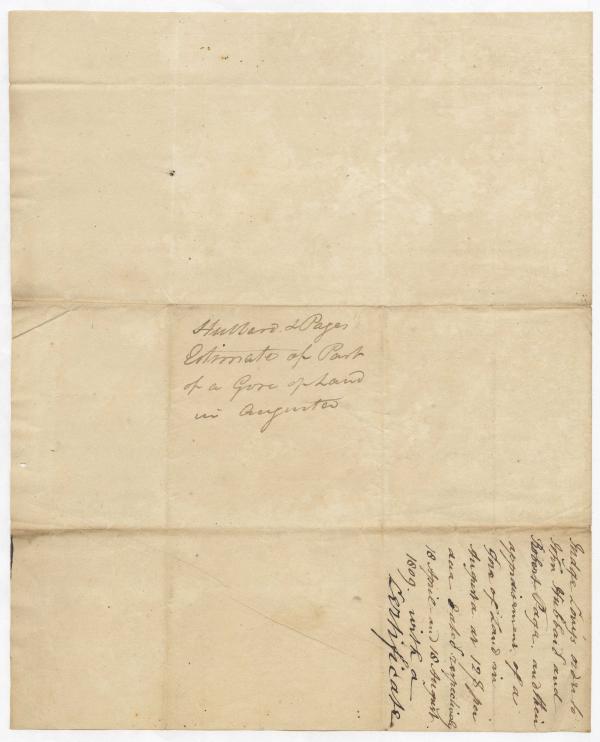 Hubbard & Pages
Estimate of Part
of a Gore of Land
in Augusta
Judge Cony's order to
John Hubbard and
Robert Page and their
appraisement of a
Gore of Land in
Augusta at 12$ per
acre dated respectively
18 April and 18 August
1809 with a
Certificate